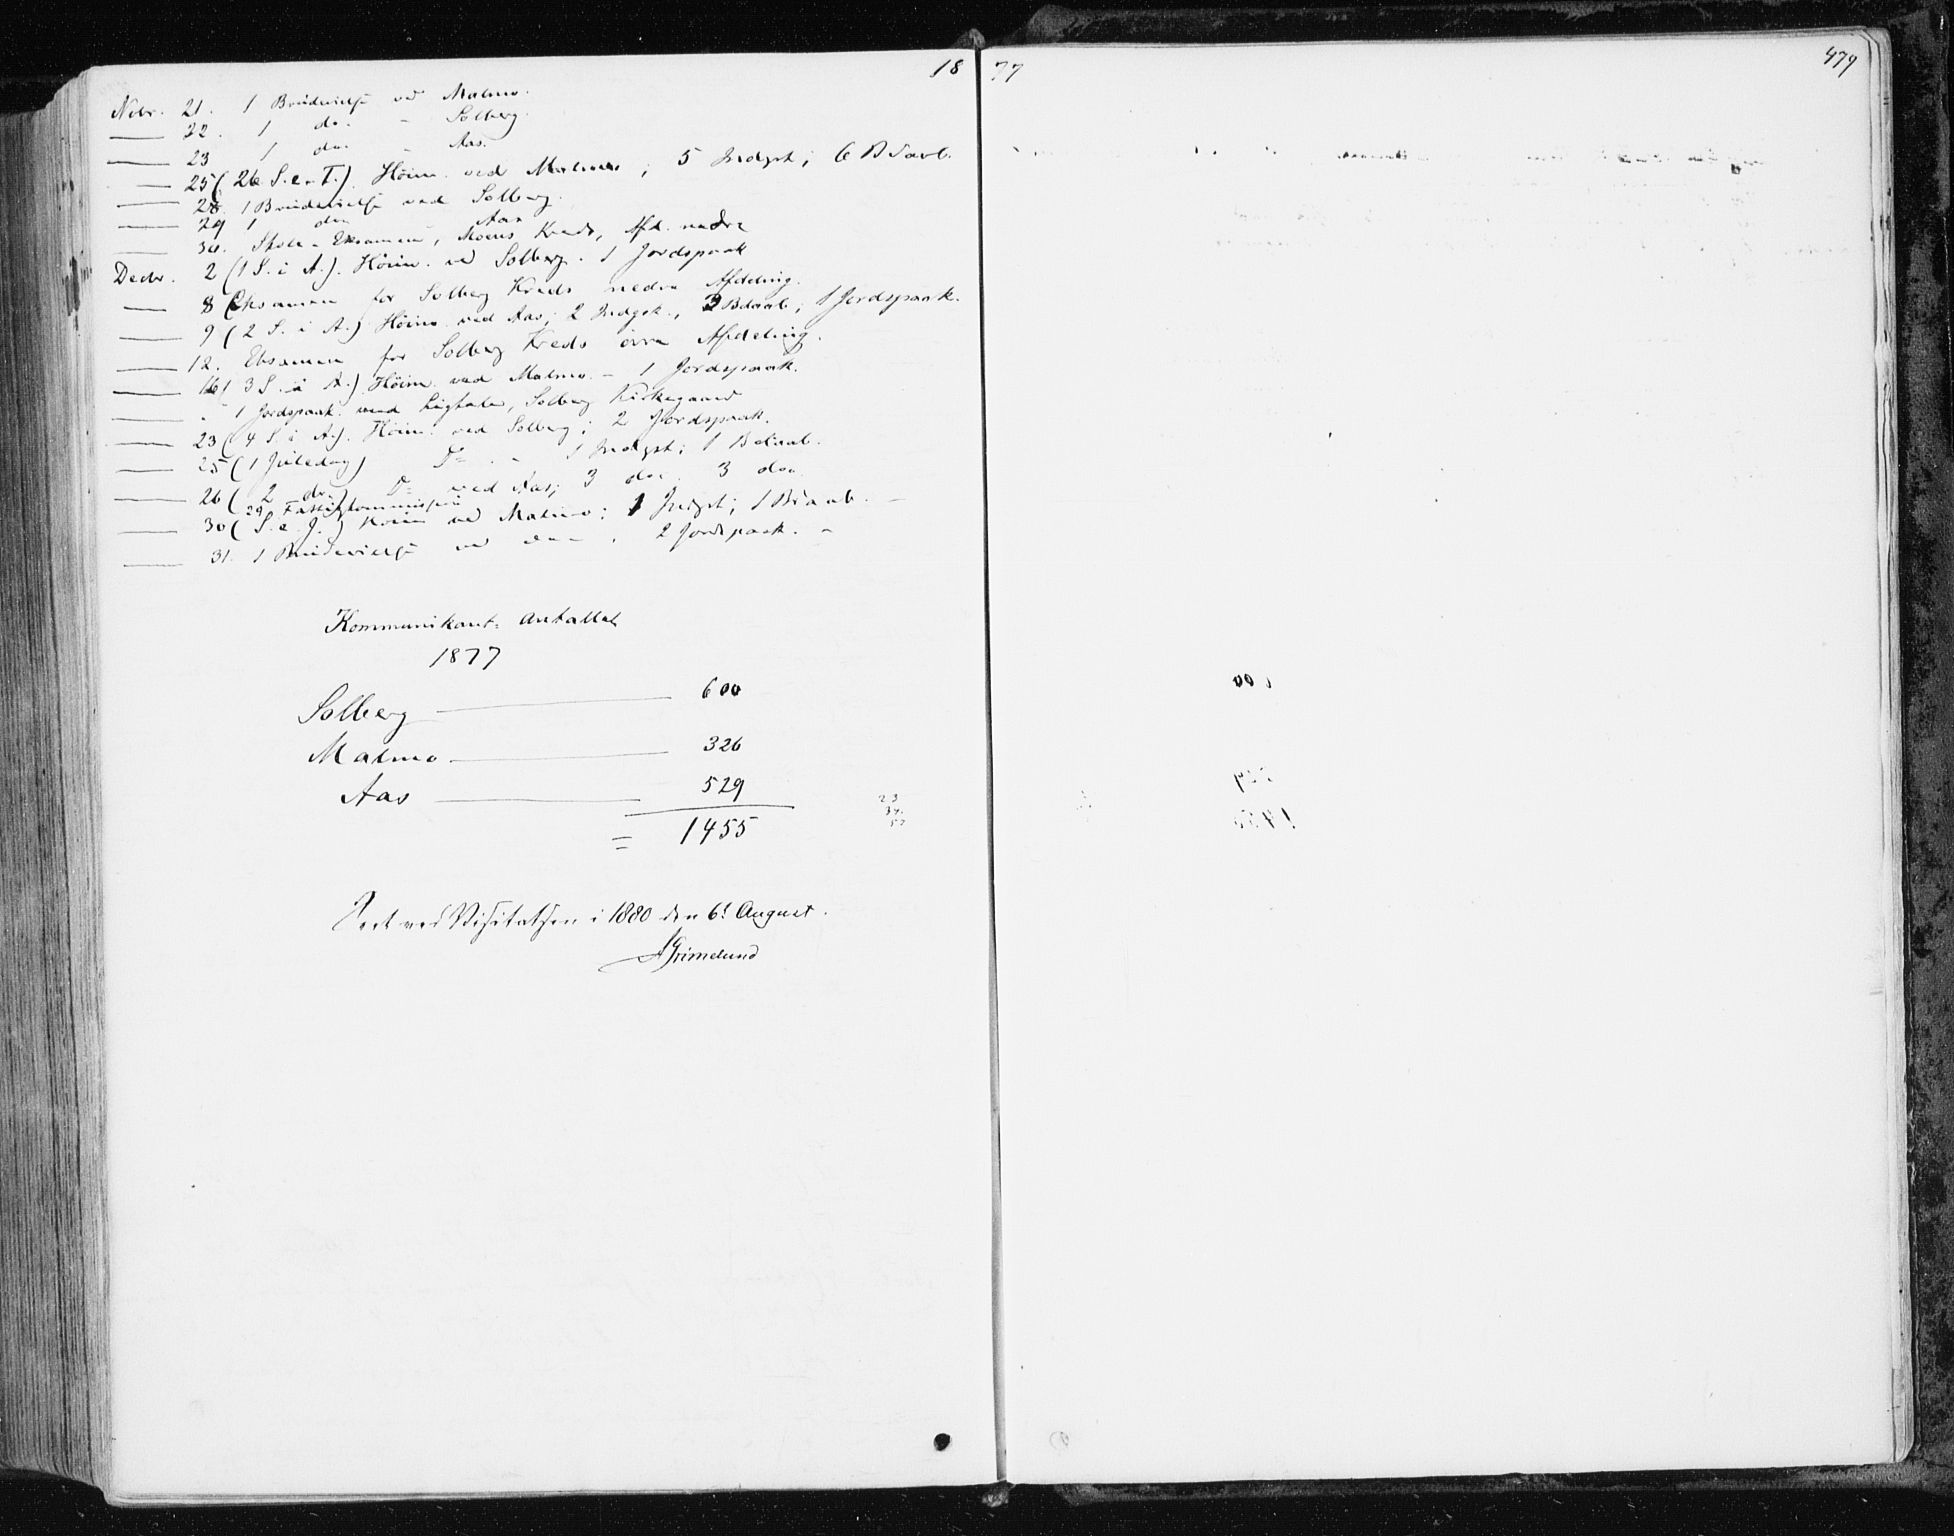 1877
479
Novbr. 21. 1 Brudevielse ved Malmo.
— 22. 1 do. - Solberg.
— 23 1 do. - Aas.
— 25 (26 S. e. T.). Höim. ved Malmo; 5 Indgst; 6 Bdaab.
— 28. 1 Brudevielse ved Solberg.
— 29 1 do. Aas
— 30. Skole-Eksamen, Moens Kreds, Afd. nedre
Decbr. 2 (1 S. i A.). Höim. ved Solberg. 1 Jordspaak
— 8 Eksamen for Solberg Kreds nedre Afdeling.
— 9 (2 S. i A.) Höim. ved Aas; 2 Indgsk., 3 Bdaab; 1 Jordspaak.
— 12. Eksamen for Solberg Kreds övre Afdeling.
— 16 (3 S. i A.) Höim. ved Malmo. - 1 Jordspaak.
— " 1 Jordspaak. med Ligtale, Solberg Kirkegaard
— 23 (4 S. i A.). Höim. ved Solberg; 2 Jordspaak.
— 25 (1 Juledag) Do - 1 Indgst; 1 Bdaab.
— 26 (2 do.) Do ved Aas; 3 do. 3 do.
29 Fattigkommission
— 30 (S. e. J.) Höim ved Malmo; 1 Indgst; 1 Bdaab. -
— 31. 1 Brudevielse ved do. 2 Jordspaak. -
Kommunikant-Antallet
1877
Solberg — 600
Malmo — 326
Aas — 529
= 1455
23
34
57
Seet ved Visitatsen i 1880 den 6t August.
AGrimelund